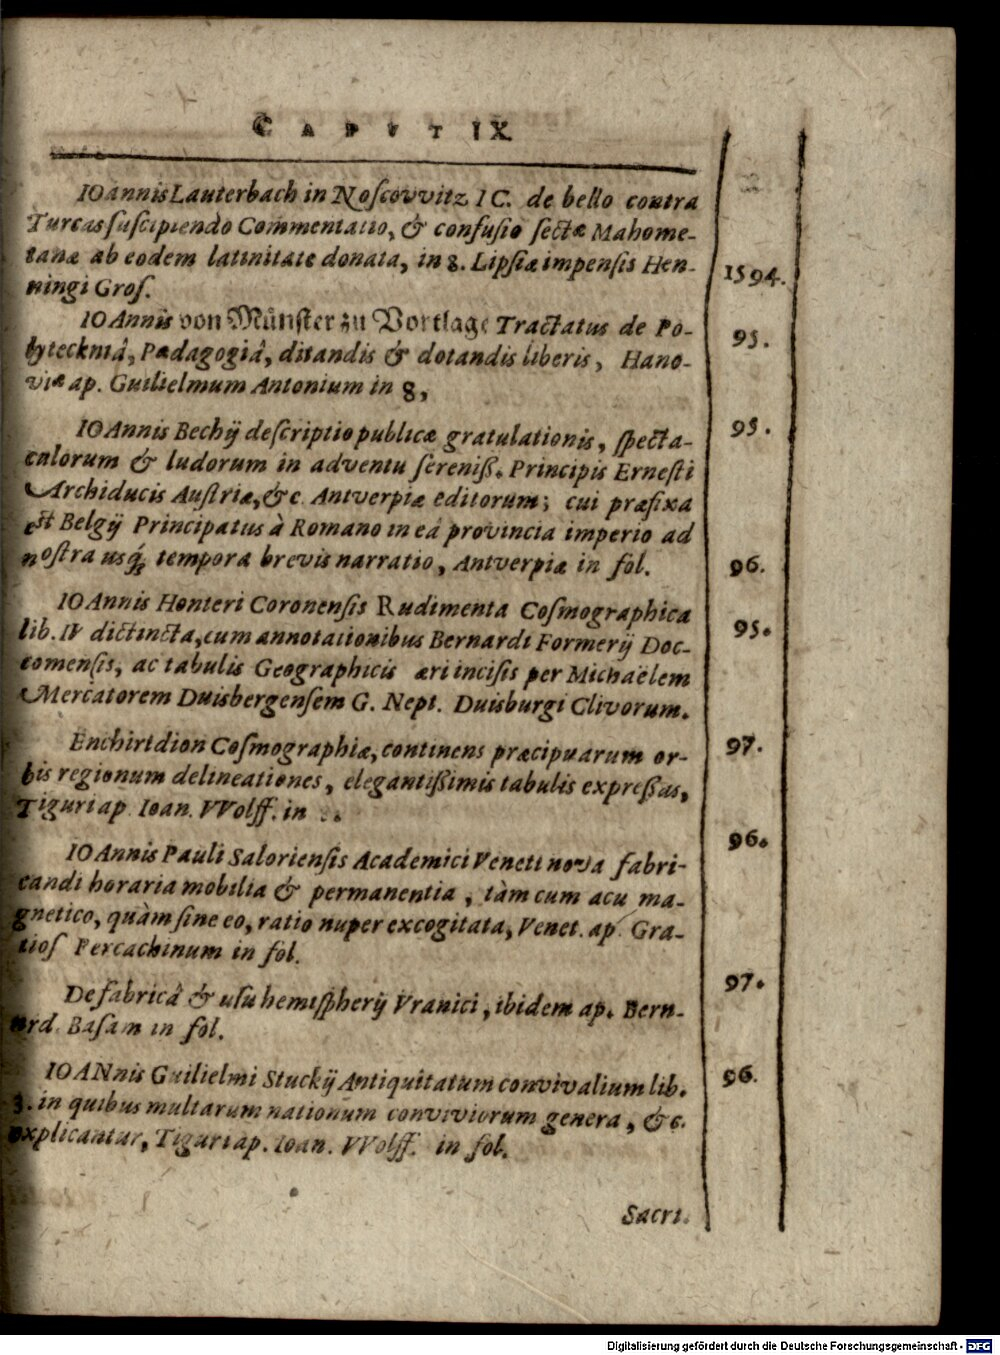 CAPVT IX.
IOannis Lauterbach in Noscovvitz IC. de bello contra
Turcas suscipiendo Commentatio, & confusio sectæ Mahome-
tanæ ab eodem latinitate donata, in 8. Lipsiæ impensis Hen-
1594.
ningi Gros.
IOAnnis von Münster zu Vortlage Tractatus de Po-
95.
lytecknîâ, Pædagogiâ, ditandis & dotandis liberis, Hano-
viæ ap. Guilielmum Antonium in 8,
IOAnnis Bechij descriptio publicæ gratulationis, specta-
95.
culorum & ludorum in adventu sereniß. Principis Ernesti
Archiducis Austriæ, &c. Antverpiæ editorum; cui præfixa
est Belgij Principatus à Romano in eâ provincia imperio ad
nostra usq́; tempora brevis narratio, Antverpiæ in fol.
96.
IOAnnis Honteri Coronensis Rudimenta Cosmographica
lib. IV dictincta, cum annotationibus Bernardi Formerij Doc-
95.
comensis, ac tabulis Geographicis æri incisis per Michaëlem
Mercatorem Duisbergensem G. Nept. Duisburgi Clivorum.
Enchiridion Cosmographiæ, continens præcipuarum or-
97.
bis regionum delineationes, elegantißimis tabulis expreßas,
Tiguri ap. Ioan. VVolff. in
IOAnnis Pauli Saloriensis Academici Veneti nova fabri-
96.
candi horaria mobilia & permanentia, tàm cum acu ma-
gnetico, quàm sine eo, ratio nuper excogitata, Venet. ap. Gra-
tios Percachinum in fol.
De fabricâ & usu hemispherij Vranici, ibidem ap. Bern-
97.
ard. Basam in fol.
IOANnis Guilielmi Stuckij Antiquitatum convivalium lib.
96.
3. in quibus multarum nationum conviviorum genera, &c.
explicantur, Tiguri ap. Ioan. VVolff. in fol.
Sacri.
Digitalisierung gefördert durch die Deutsche Forschungsgemeinschaft - DFG